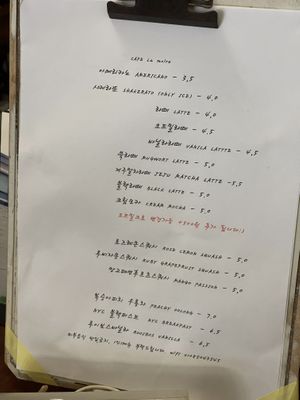 CAFE La
아메리카노 AMERICANO - 3,5
샤케라또 SHAKERATO (ONLY ICE) - 4,0
라떼 LATTE - 4,0
오트밀라떼 - 4,5
바닐라라떼 VANILA LATTE - 4,5
쑥라떼 MUGWORT LATTE - 5,0
제주말차라떼 JEJU MATCHA LATTE - 5,5
블랙라떼 BLACK LATTE - 5,0
크림모카 CREAM MOCHA - 5,0
오트밀크로 변경가능 +500원 추가 됩니다:)
로즈레몬스쿼시 ROSE LEMON SQUASH - 5,0
루비자몽스쿼시 RUBY GRAPEFRUIT SQUASH - 5,0
망고패션후르츠스쿼시 MANGO PASSION - 5,0
복숭아피치 우롱차 PEACHY OOLONG - 7,0
NYC 블랙퍼스트 NYC BREAKFAST - 6,5
루이보스바닐라 ROOIBOS VANILLA - 6,5
WIFI